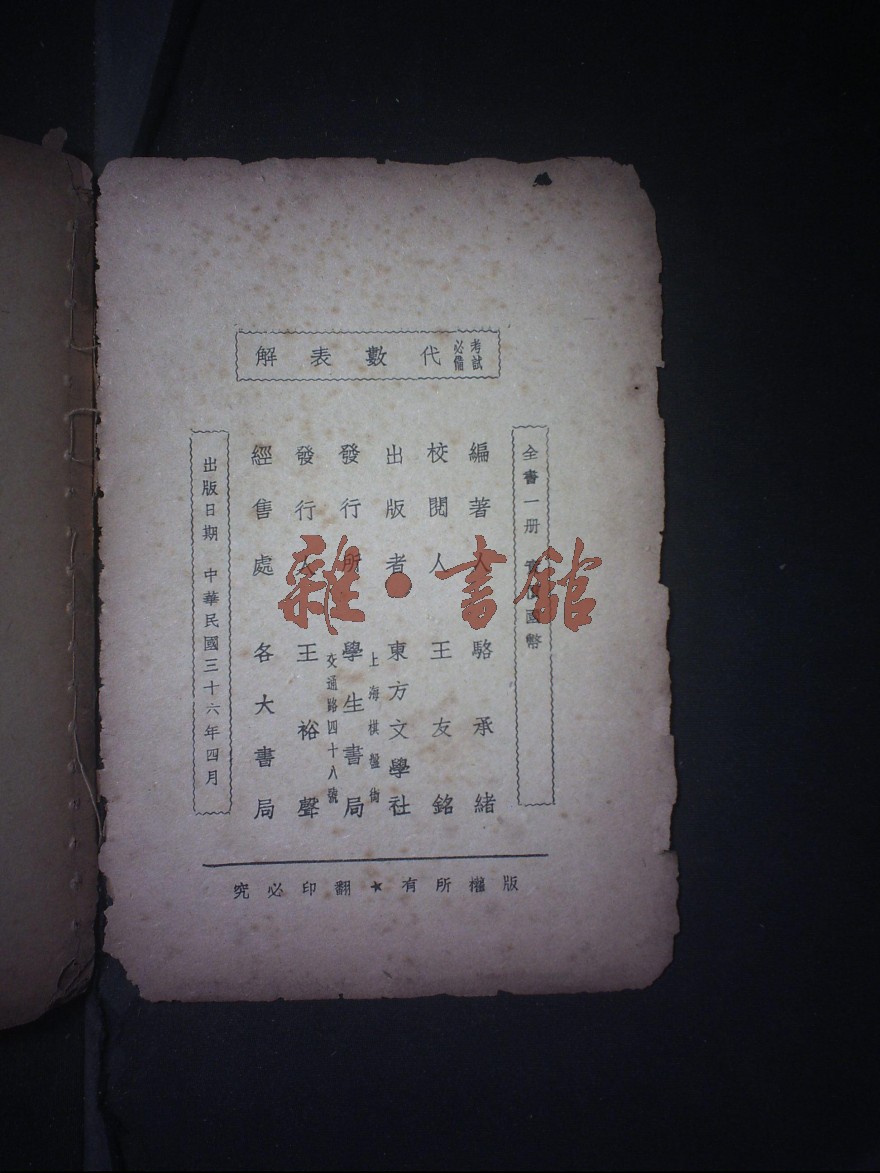 考試必備 代數表解
全書一冊 實價國幣
編著人 駱承緒
校閱人 王友銘
出版者 東方文學社
發行所 學生書局
上海棋盤街
交通路四十八號
發行人 王裕聲
經售處 各大書局
出版日期 中華民國三十六年四月
版權所有★翻印必究
雜·書館